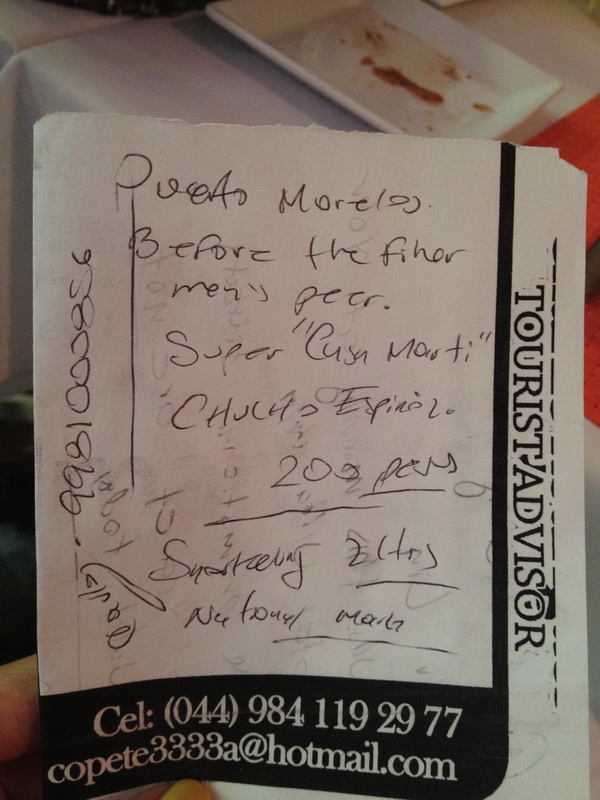 Puerto Morelos.
Before the fisher
men's peer.
Super "Casa Marti"
200 pesos
Snorkeling 2
National
9981000856
TOURIST ADVISOR
Cel: (044) 984 119 29 77
copete3333a@hotmail.com